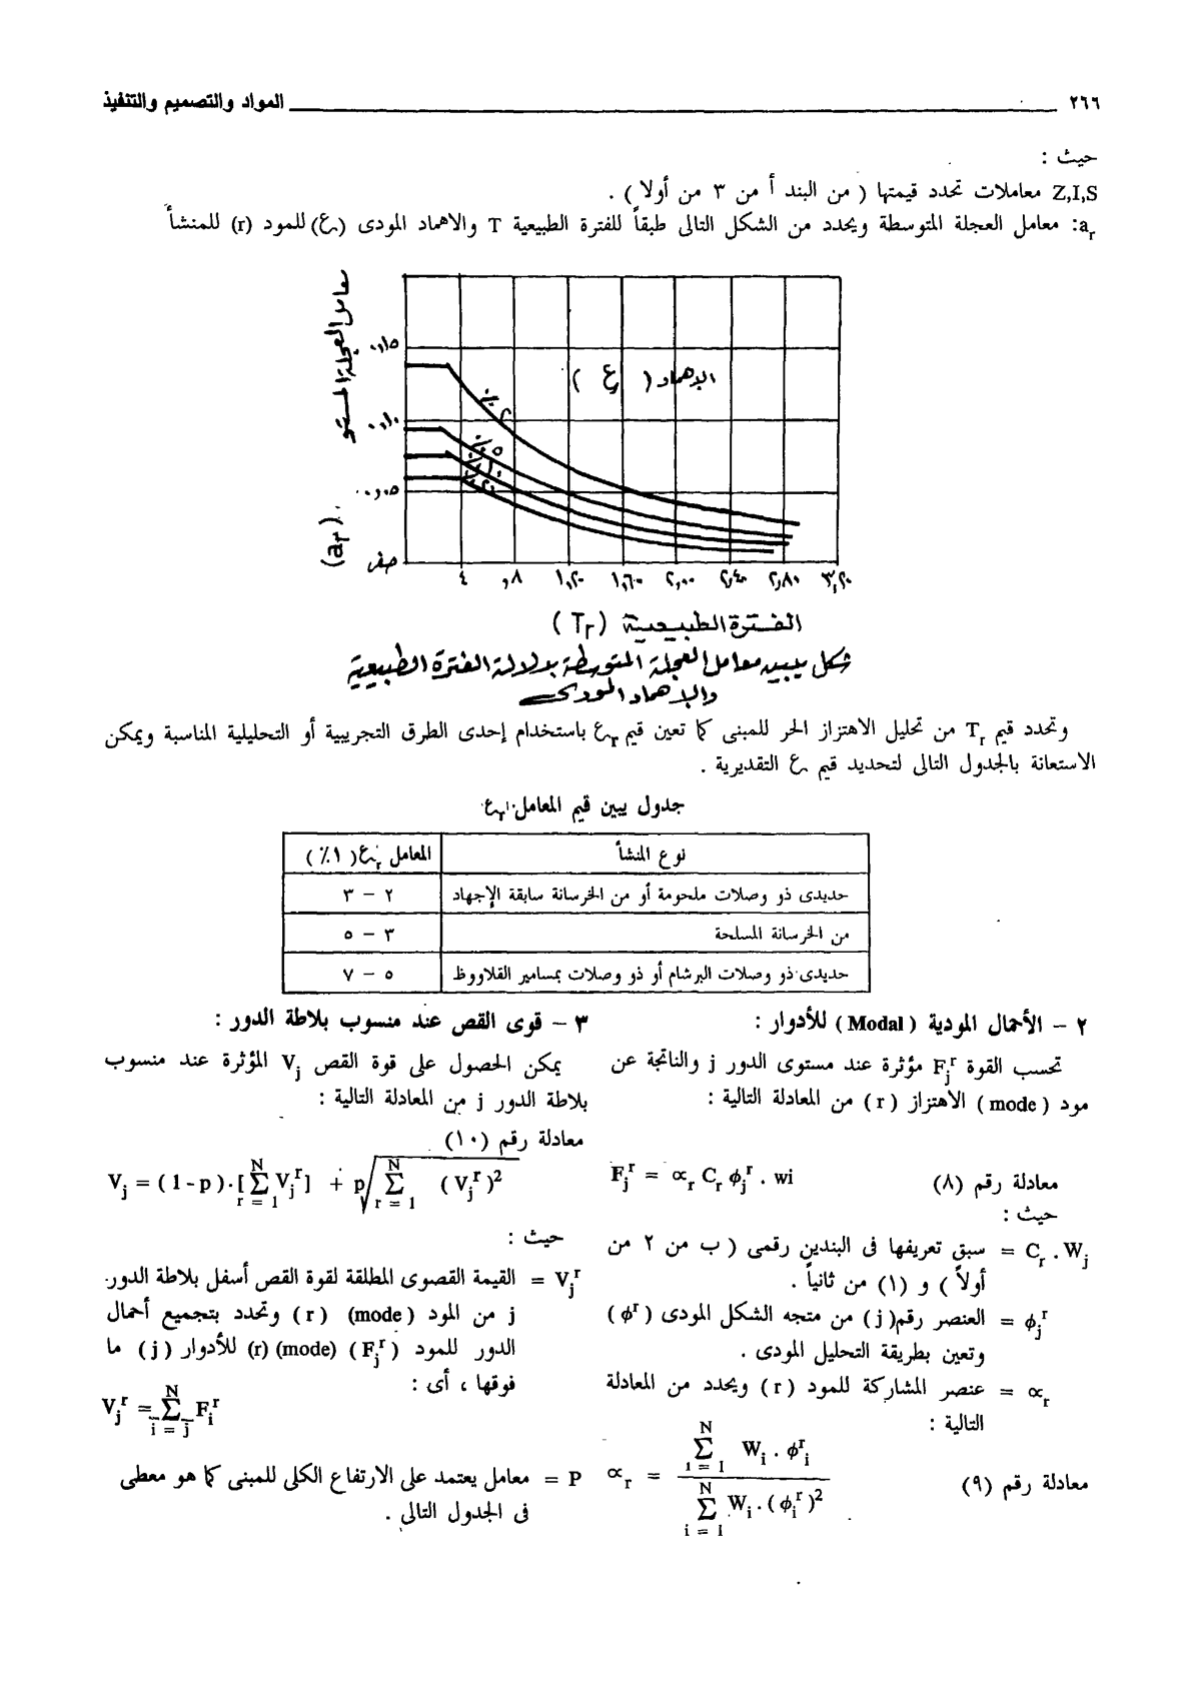 ٢٦٦ المواد والتصميم والتنفيذ
حيث :
Z,I,S معاملات تحدد قيمتها ( من البند أ من ٣ من أولا ) .
a_r: معامل العجلة المتوسطة ويحدد من الشكل التالى طبقاً للفترة الطبيعية T والاهماد المودى (ع) للمود (r) للمنشأ
معامل العجلة المتو
(a_r)
٠,١٥
٠,١٠
٠,٠٥
صفر
الإهماد ( ع )
٢٪
٥٪
١٠٪
٢٠٪
٤ ,٨ ١,٢٠ ١,٦٠ ٢,٠٠ ٢,٤٠ ٢,٨٠ ٣,٢٠
الفترة الطبيعية (T_r)
شكل يبين معامل العجلة المتوسطة بدلالة الفترة الطبيعية
والإهماد المودى
وتحدد قيم T_r من تحليل الاهتزاز الحر للمبنى كما تعين قيم ع_r باستخدام إحدى الطرق التجريبية أو التحليلية المناسبة ويمكن
الاستعانة بالجدول التالى لتحديد قيم ع التقديرية .
جدول يبين قيم المعامل ع_r
نوع المنشأ المعامل ع_r ( ١٪ )
حديدى ذو وصلات ملحومة أو من الخرسانة سابقة الإجهاد ٢ – ٣
من الخرسانة المسلحة ٣ – ٥
حديدى ذو وصلات البرشام أو ذو وصلات بمسامير القلاووظ ٥ – ٧
٢ – الأحمال المودية ( Modal ) للأدوار :
تحسب القوة F_j^r مؤثرة عند مستوى الدور j والناتجة عن
مود ( mode ) الاهتزاز ( r ) من المعادلة التالية :
معادلة رقم (٨) F_j^r = ∝_r C_r ϕ_j^r . wi
حيث :
C_r . W_j = سبق تعريفها فى البندين رقمى ( ب من ٢ من
أولاً ) و (١) من ثانياً .
ϕ_j^r = العنصر رقم( j ) من متجه الشكل المودى ( ϕ^r )
وتعين بطريقة التحليل المودى .
∝_r = عنصر المشاركة للمود ( r ) ويحدد من المعادلة
التالية :
معادلة رقم (٩) ∝_r = \frac{\sum_{i=1}^{N} W_i . ϕ_i^r}{\sum_{i=1}^{N} W_i . (ϕ_i^r)^2}
٣ – قوى القص عند منسوب بلاطة الدور :
يمكن الحصول على قوة القص V_j المؤثرة عند منسوب
بلاطة الدور j من المعادلة التالية :
معادلة رقم (١٠)
V_j = ( 1 - p ) . [\sum_{r=1}^{N} V_j^r] + p\sqrt{\sum_{r=1}^{N} (V_j^r)^2}
حيث :
V_j^r = القيمة القصوى المطلقة لقوة القص أسفل بلاطة الدور
j من المود ( mode ) ( r ) وتحدد بتجميع أحمال
الدور للمود ( F_j^r ) (mode) (r) للأدوار ( j ) ما
فوقها ، أى :
V_j^r = \sum_{i=j}^{N} F_i^r
P = معامل يعتمد على الارتفاع الكلى للمبنى كما هو معطى
فى الجدول التالى .